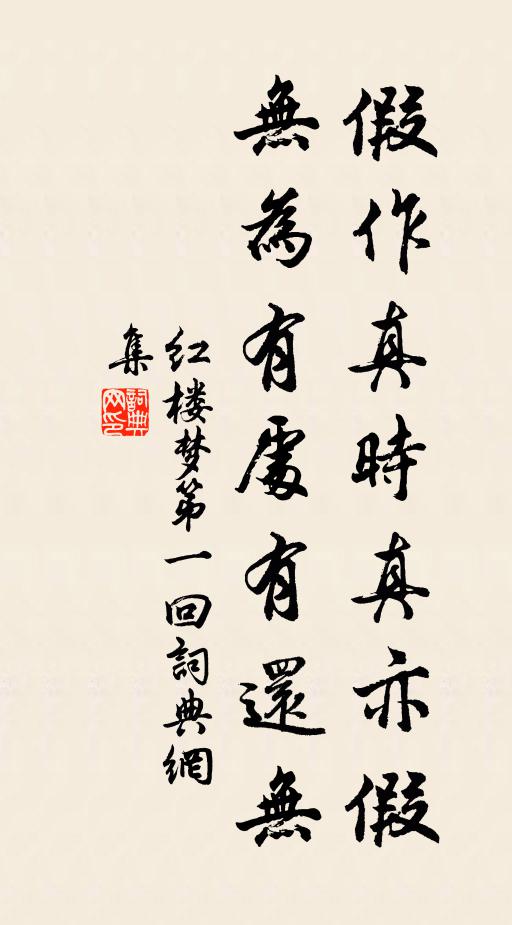 假作真時真亦假
無為有處有還無
红楼梦第一回詞典網
集
詞典网印